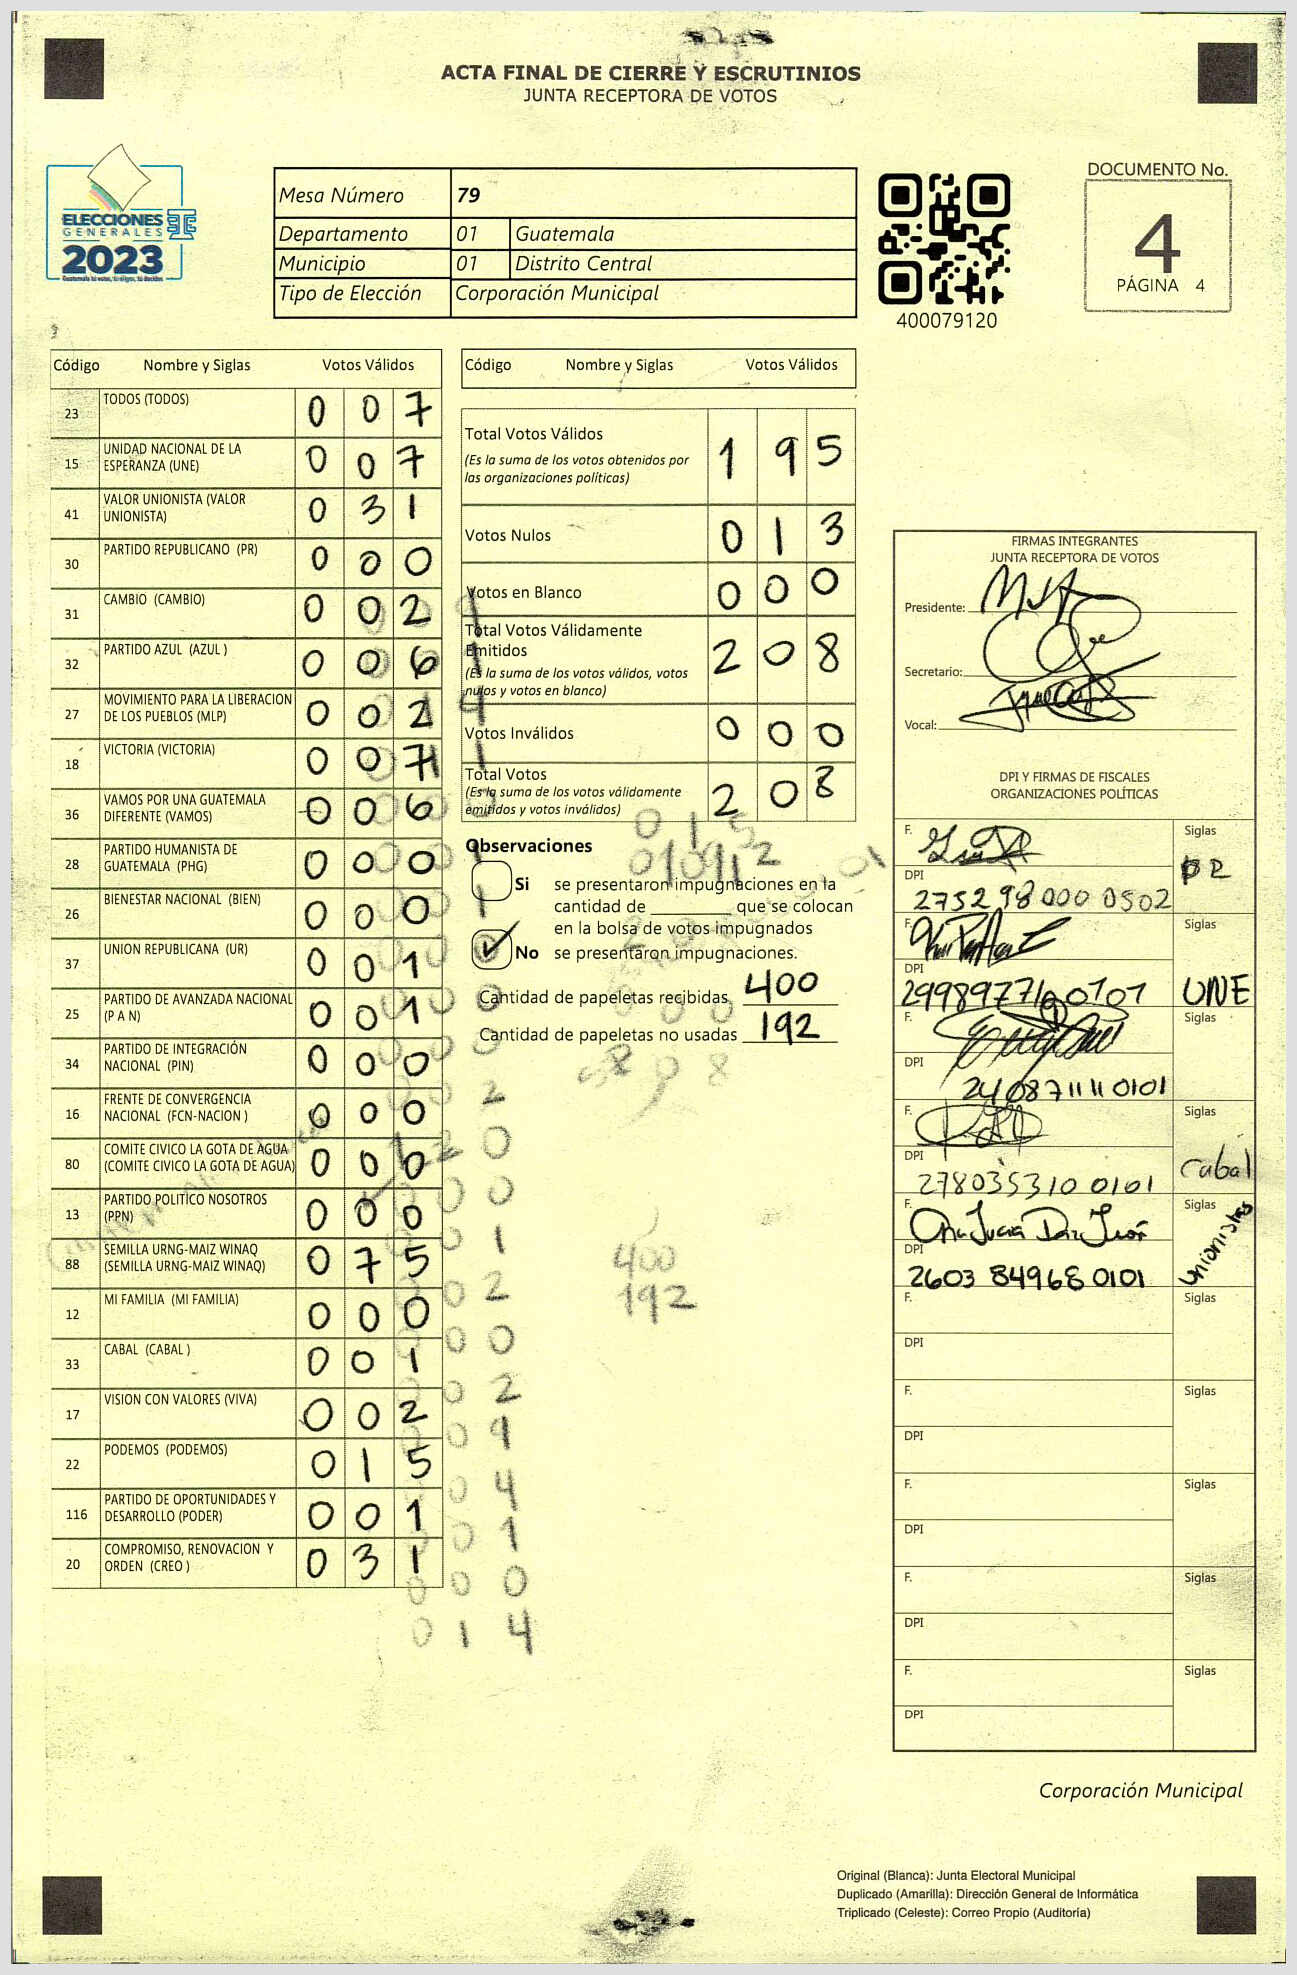 ACTA FINAL DE CIERRE Y ESCRUTINIOS
JUNTA RECEPTORA DE VOTOS
ELECCIONES
GENERALES
2023
Guatemala tú votas, tú eliges, tú decides
Mesa Número 79
Departamento 01 Guatemala
Municipio 01 Distrito Central
Tipo de Elección Corporación Municipal
400079120
DOCUMENTO No.
4
PÁGINA 4
Código Nombre y Siglas Votos Válidos
23 TODOS (TODOS) 0 0 7
15 UNIDAD NACIONAL DE LA
ESPERANZA (UNE) 0 0 7
41 VALOR UNIONISTA (VALOR
UNIONISTA) 0 3 1
30 PARTIDO REPUBLICANO (PR) 0 0 0
31 CAMBIO (CAMBIO) 0 0 2
32 PARTIDO AZUL (AZUL ) 0 0 6
27 MOVIMIENTO PARA LA LIBERACION
DE LOS PUEBLOS (MLP) 0 0 2
18 VICTORIA (VICTORIA) 0 0 7
36 VAMOS POR UNA GUATEMALA
DIFERENTE (VAMOS) 0 0 6
28 PARTIDO HUMANISTA DE
GUATEMALA (PHG) 0 0 0
26 BIENESTAR NACIONAL (BIEN) 0 0 0
37 UNION REPUBLICANA (UR) 0 0 1
25 PARTIDO DE AVANZADA NACIONAL
(P A N) 0 0 1
34 PARTIDO DE INTEGRACIÓN
NACIONAL (PIN) 0 0 0
16 FRENTE DE CONVERGENCIA
NACIONAL (FCN-NACION ) 0 0 0
80 COMITE CIVICO LA GOTA DE AGUA
(COMITE CIVICO LA GOTA DE AGUA) 0 0 0
13 PARTIDO POLITICO NOSOTROS
(PPN) 0 0 0
88 SEMILLA URNG-MAIZ WINAQ
(SEMILLA URNG-MAIZ WINAQ) 0 7 5
12 MI FAMILIA (MI FAMILIA) 0 0 0
33 CABAL (CABAL ) 0 0 1
17 VISION CON VALORES (VIVA) 0 0 2
22 PODEMOS (PODEMOS) 0 1 5
116 PARTIDO DE OPORTUNIDADES Y
DESARROLLO (PODER) 0 0 1
20 COMPROMISO, RENOVACION Y
ORDEN (CREO ) 0 3 1
Código Nombre y Siglas Votos Válidos
Total Votos Válidos 1 9 5
(Es la suma de los votos obtenidos por
las organizaciones políticas)
Votos Nulos 0 1 3
Votos en Blanco 0 0 0
Total Votos Válidamente
Emitidos 2 0 8
(Es la suma de los votos válidos, votos
nulos y votos en blanco)
Votos Inválidos 0 0 0
Total Votos 2 0 8
(Es la suma de los votos válidamente
emitidos y votos inválidos)
Observaciones
Si se presentaron impugnaciones en la
cantidad de ________ que se colocan
en la bolsa de votos impugnados
No se presentaron impugnaciones.
Cantidad de papeletas recibidas 400
Cantidad de papeletas no usadas 192
400
192
FIRMAS INTEGRANTES
JUNTA RECEPTORA DE VOTOS
Presidente:
Secretario:
Vocal:
DPI Y FIRMAS DE FISCALES
ORGANIZACIONES POLÍTICAS
F. Siglas
DPI
2752 98000 0502
F. Siglas
DPI UNE
299897710 0101
F. Siglas
DPI
2408711110101
F. Siglas
DPI Cabal
278035310 0101
F. Siglas
DPI unionistas
2603 84968 0101
F. Siglas
DPI
F. Siglas
DPI
F. Siglas
DPI
F. Siglas
DPI
F. Siglas
DPI
Corporación Municipal
Original (Blanca): Junta Electoral Municipal
Duplicado (Amarilla): Dirección General de Informática
Triplicado (Celeste): Correo Propio (Auditoría)